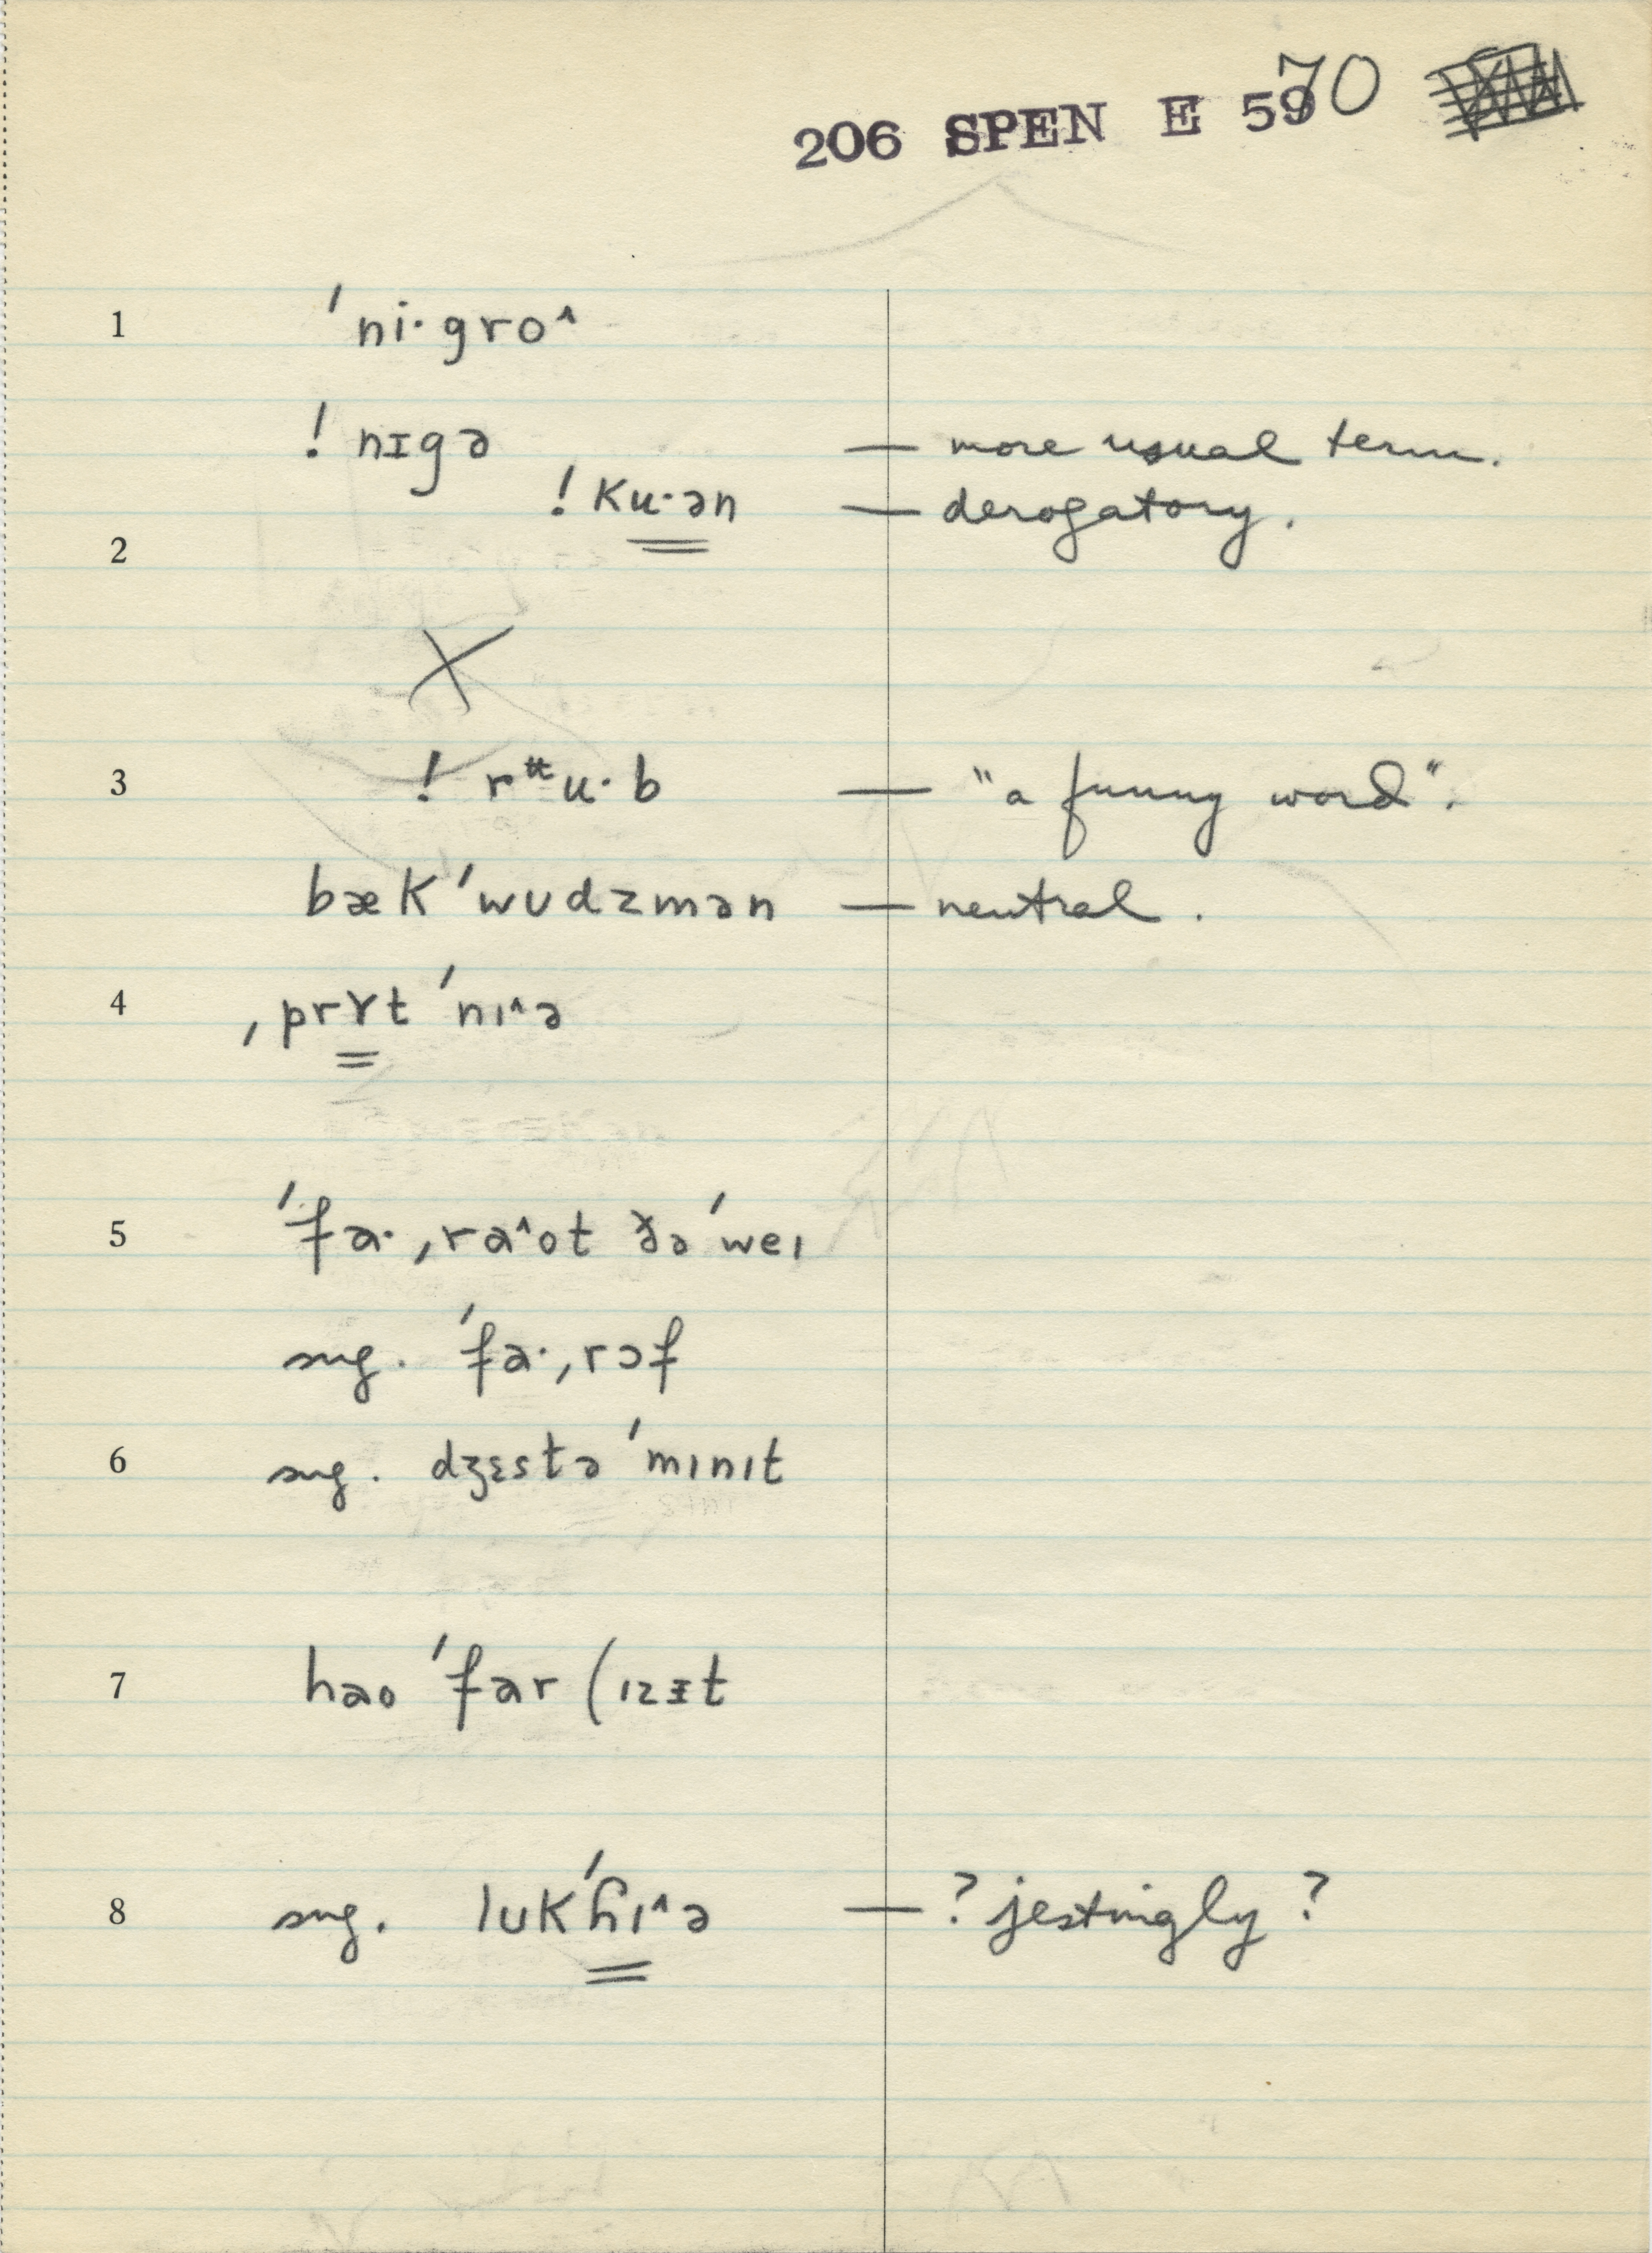 206 SPEN E 5970
1 ˈni·gro^
! nɪgə — more usual term.
! ku·ən — derogatory.
2
X
3 ! rᵾu·b — "a funny word".
bæk ˈwʊdzmən — neutral.
4 ˌprɤt ˈnɪ^ə
5 ˈfa· ˌra^ot ðə ˈweɪ
sug. ˈfa· ˌrɔf
6 sug. dʒɛstə ˈmɪnɪt
7 hao ˈfar (ɪzɪt
8 sug. lʊk ˈɦɪ^ə — ? jestingly ?